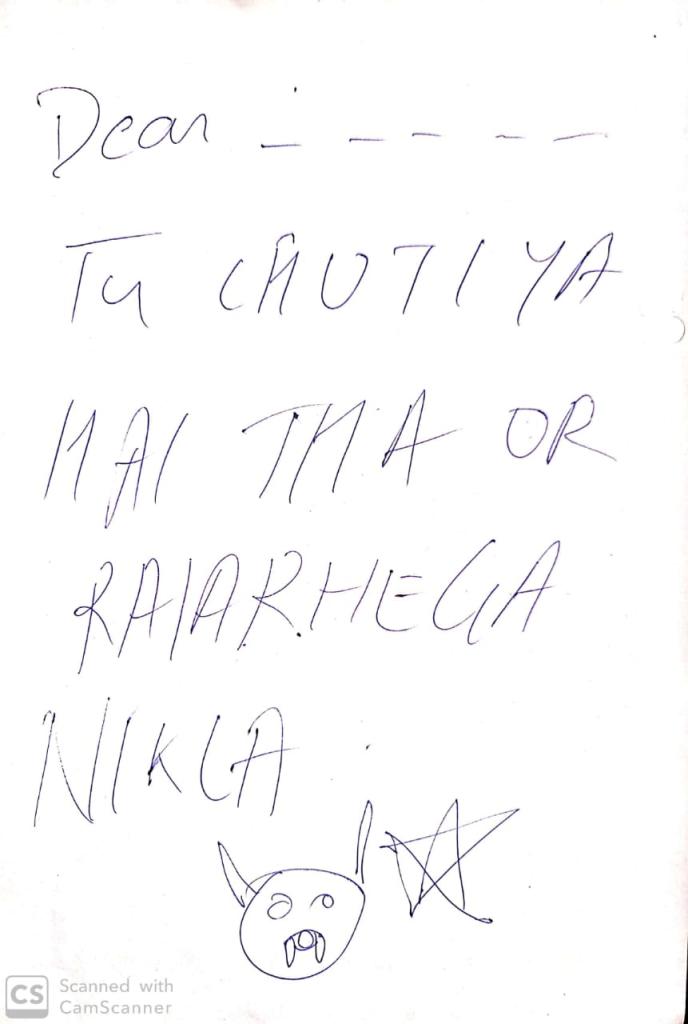 Dear _ _ _ _ _
Tu CHUTIYA
HAI THA OR
RAIARHEGA
NIKLA .
CS Scanned with
CamScanner